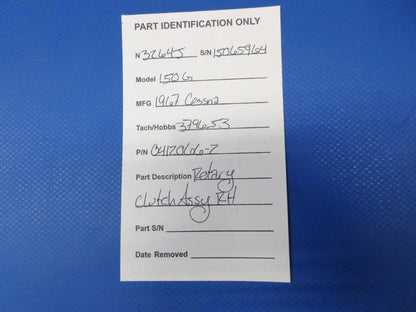 PART IDENTIFICATION ONLY
N 3264J S/N 15065964
Model 150G
MFG 1967 Cessna
Tach/Hobbs 3796.53
P/N 0412066-2
Part Description Rotary
Clutch Assy RH
Part S/N
Date Removed